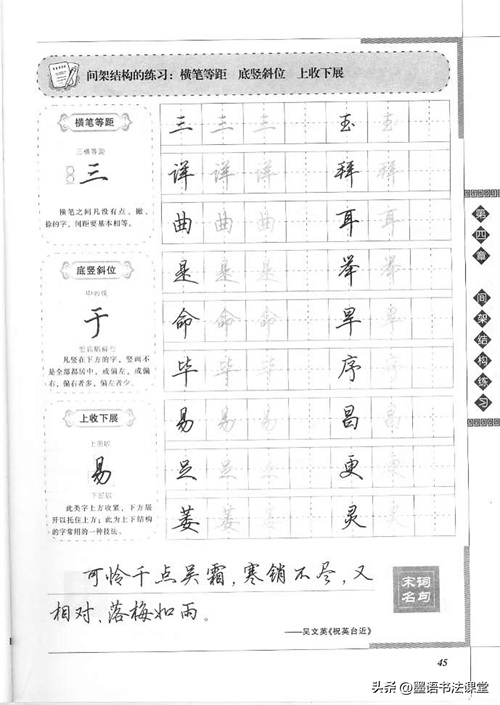 间架结构的练习：横笔等距 底竖斜位 上收下展
横笔等距
三横等距
三
横笔之间凡没有点、撇、
捺的字，间距要基本相等。
底竖斜位
于
凡竖在下方的字，竖画不
是全部都居中，或偏左，或偏
右，偏右者多，偏左者少。
上收下展
易
此类字上方收紧，下方展
开以托住上方；此为上下结构
的字常用的一种技法。
三 三 三 玉 玉
详 详 详 拜 拜
曲 曲 曲 耳 耳
是 是 是 举 举
命 命 命 旱 旱
毕 毕 毕 序 序
易 易 易 昌 昌
足 足 足 更 更
萎 萎 萎 灵 灵
可怜千点吴霜，寒销不尽，又
相对、落梅如雨。
宋词
名句
——吴文英《祝英台近》
第四章 间架结构练习
45
头条 @墨语书法课堂